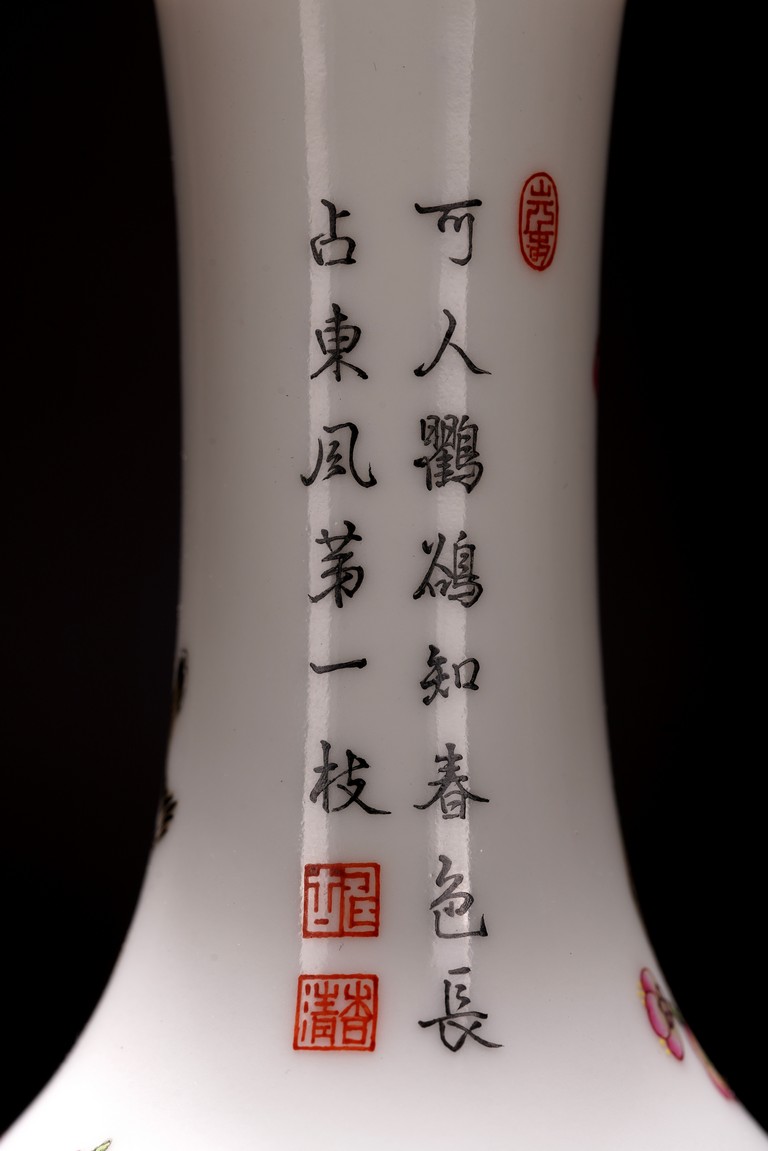 可人鸜鵒知春色長
占東風苐一枝
香清